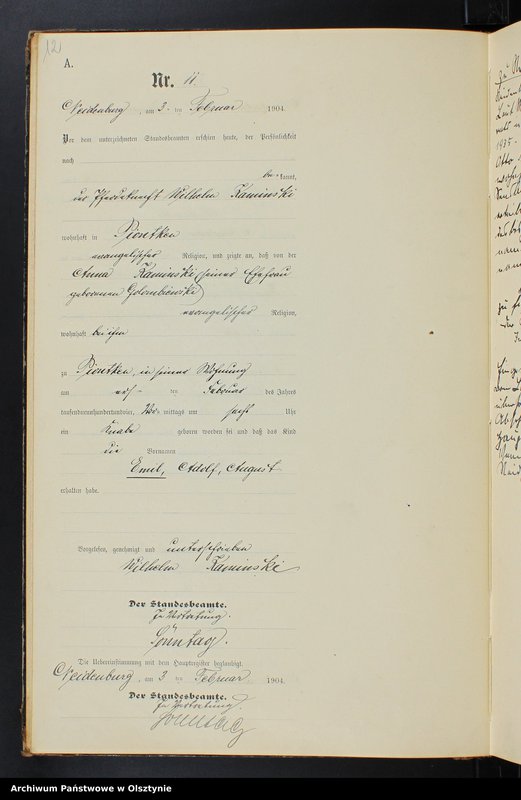 12
A.
Nr. 11
Neidenburg, am 3. ten Februar 1904.
Vor dem unterzeichneten Standesbeamten erschien heute, der Persönlichkeit
nach
be-kannt,
der Pferdeknecht Wilhelm Kaminski
wohnhaft in Piontken
evangelischer Religion, und zeigte an, daß von der
Anna Kaminski (seiner Ehefrau
geborenen Golombiewski)
evangelischer Religion,
wohnhaft bei ihm
zu Piontken, in seiner Wohnung
am ersten Februar des Jahres
tausendneunhundertundvier, Vor-mittags um sechs Uhr
ein Knabe geboren worden sei und daß das Kind
die Vornamen
Emil, Adolf, August
erhalten habe.
Vorgelesen, genehmigt und unterschrieben
Wilhelm Kaminski
Der Standesbeamte.
In Vertretung.
Sonntag.
Die Uebereinstimmung mit dem Hauptregister beglaubigt.
Neidenburg, am 3. ten Februar 1904.
Der Standesbeamte.
In Vertretung.
Sonntag
1935.
Otto
Archiwum Państwowe w Olsztynie